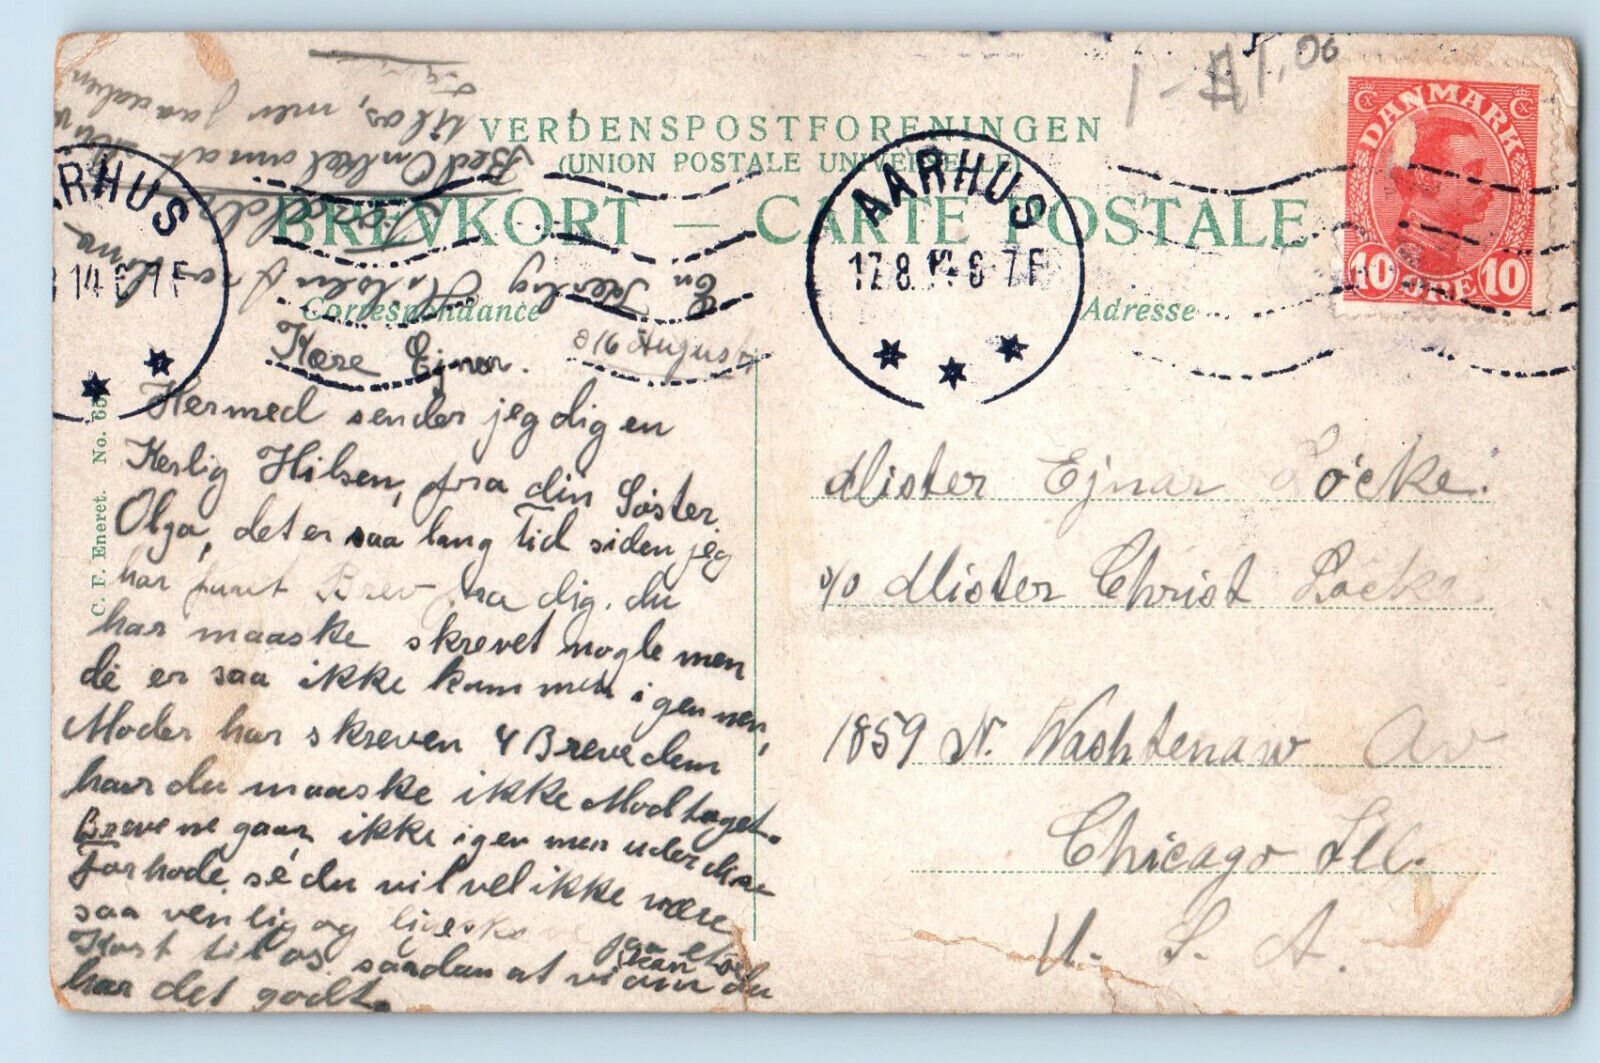 VERDENSPOSTFORENINGEN
(UNION POSTALE UNIVERSELLE)
BREVKORT — CARTE POSTALE
Correspondance
Adresse
AARHUS
17.8.14. 6-7F
AARHUS
14 6-7F
DANMARK
10 ØRE 10
1 - $1,00
C. F. Eneret. No. 65
Kære Ejnar. d 16 August
Hermed sender jeg dig en
Kerlig Hilsen, fra din Søster
Olga, det er saa lang Tid siden jeg
har faaet Brev fra dig. du
har maaske skrevet nogle men
de er saa ikke kommen igennem,
Moder har skreven 4 Breve dem
har du maaske ikke Modtaget.
Brevene gaar ikke igennem under disse
Forhode, sé du vil vel ikke være
saa venlig og
Kort til os saadan at vi kan faa et om du
har det godt.
En Kerlig Hilsen fra
Bed Onkel om at
til os, mer faa
Mister Ejnar Löcke.
c/o Mister Christ Löcke
1859 N. Washtenaw Av
Chicago Ill.
U. S. A.